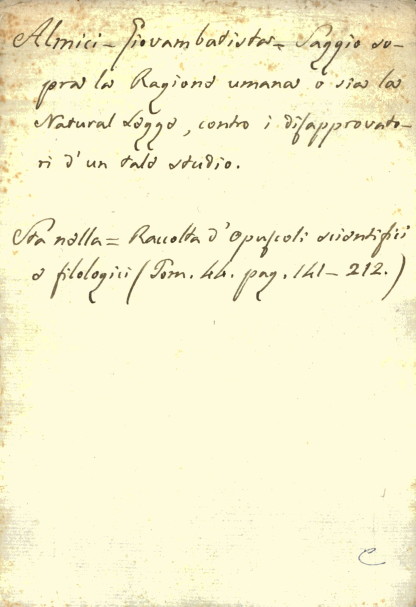 Almici = Giovambatista = Saggio so-
pra la Ragione umana o sia la
Natural Legge, contro i disapprovato-
ri d'un tale studio.
Sta nella = Raccolta d'Opuscoli scientifici
e filologici (Tom. 44. pag. 141 - 212.)
C